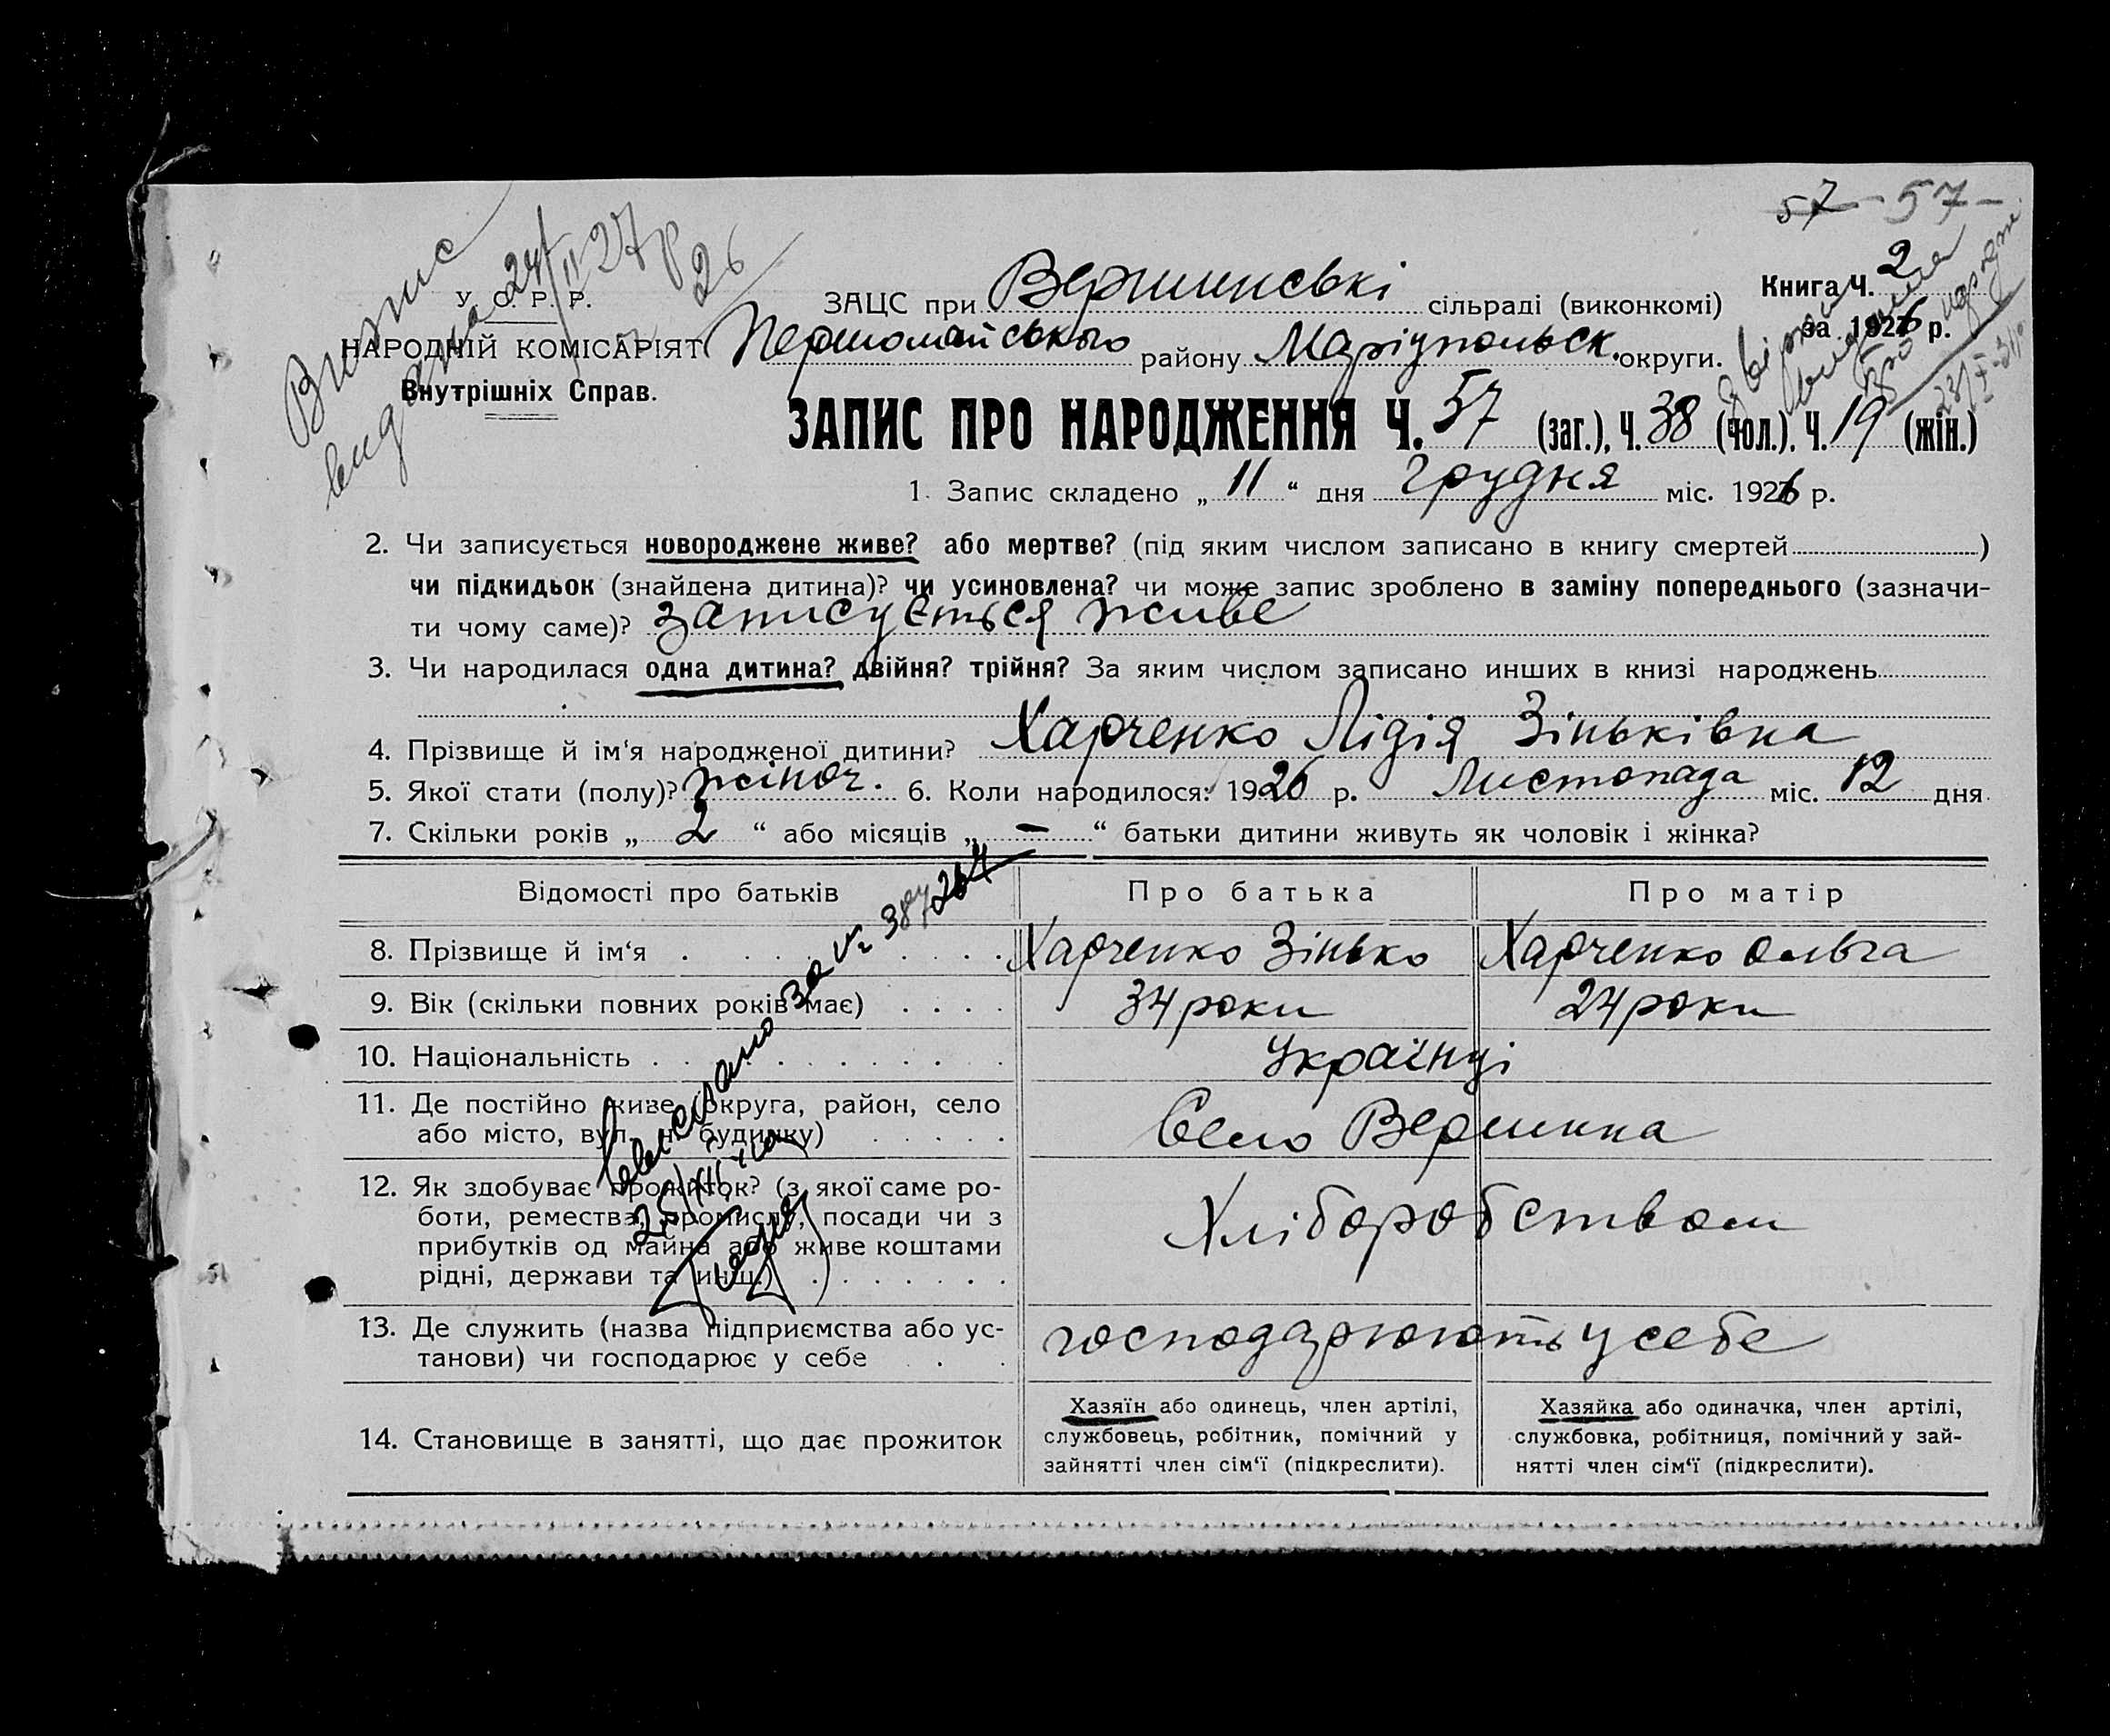 57 - 57 -
Випис
видана 24/II 27 р
26
У. С. Р. Р.
НАРОДНІЙ КОМІСАРІЯТ
Внутрішніх Справ.
ЗАЦС при Вершинські сільраді (виконкомі)
Книга Ч. 2
за 1926 р.
Першомайського району Маріупольськ. округи.
ЗАПИС ПРО НАРОДЖЕННЯ Ч. 57 (заг.), Ч. 38 (чол.), Ч. 19 (жін.)
1. Запис складено „ 11 “ дня Грудня міс. 1926 р.
2. Чи записується новороджене живе? або мертве? (під яким числом записано в книгу смертей )
чи підкидьок (знайдена дитина)? чи усиновлена? чи може запис зроблено в заміну попереднього (зазначи-
ти чому саме)? записується живе
3. Чи народилася одна дитина? двійня? трійня? За яким числом записано инших в книзі народжень
4. Прізвище й ім‘я народженої дитини? Харченко Лідія Зіньківна
5. Якої стати (полу)? жіноч. 6. Коли народилося: 1926 р. Листопада міс. 12 дня
7. Скільки років „ 2 “ або місяців „ - “ батьки дитини живуть як чоловік і жінка?
Відомості про батьків Про батька Про матір
8. Прізвище й ім‘я Харченко Зінько Харченко Ольга
9. Вік (скільки повних років має) 34 роки 24 роки
10. Національність Українці
11. Де постійно живе (округа, район, село
або місто, вул. н. будинку) Село Вершина
12. Як здобуває прожиток? (з якої саме ро-
боти, ремества, промислу, посади чи з
прибутків од майна або живе коштами
рідні, держави та инш.) Хліборобством
13. Де служить (назва підприємства або ус-
танови) чи господарює у себе господарюють у себе
14. Становище в занятті, що дає прожиток
Хазяїн або одинець, член артілі,
службовець, робітник, помічний у
зайнятті член сім‘ї (підкреслити).
Хазяйка або одиначка, член артілі,
службовка, робітниця, помічний у зай-
нятті член сім‘ї (підкреслити).